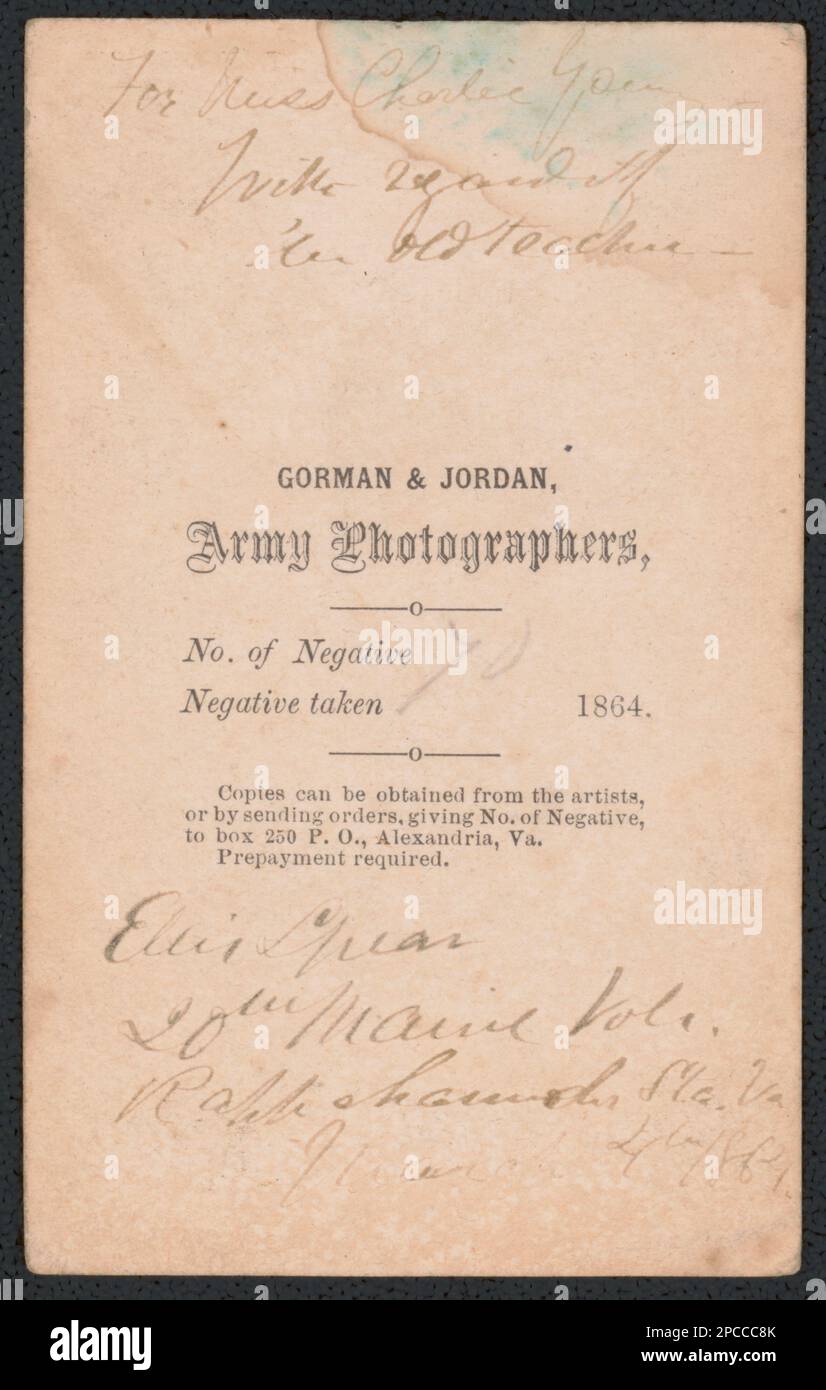 For Miss Charlie
With regard of
her old teacher —
GORMAN & JORDAN,
Army Photographers,
No. of Negative 70
Negative taken 1864.
Copies can be obtained from the artists,
or by sending orders, giving No. of Negative,
to box 250 P. O., Alexandria, Va.
Prepayment required.
Ellis Spear
20th Maine Vols.
Rappahannock Sta. Va
March 4th 1864.
alamy
Image ID: 2PCCC8K
www.alamy.com